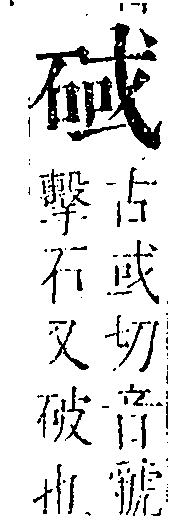 古或切音虢
擊石又破也